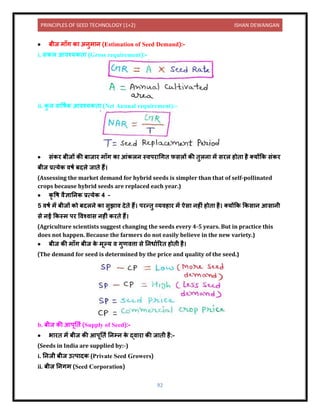 PRINCIPLES OF SEED TECHNOLOGY (1+2) ISHAN DEWANGAN
• बीज माँग का अनुमान (Estimation of Seed Demand):-
i. सकल आवश्यकता (Gross requirement):-
GR = A × Seed Rate
A = Annual Cultivated area
ii. कुल वार्षिक आवश्यकता (Net Annual requirement):-
= GR / T
T = Seed Replacement Period
• संकर बीजों की बाजार माँग का आंकलन स्वपरागित फसलों की तुलना में सरल होता है क्योंकि संकर
बीज प्रत्येक वर्ष बदले जाते हैं।
(Assessing the market demand for hybrid seeds is simpler than that of self-pollinated
crops because hybrid seeds are replaced each year.)
• कृषि वैज्ञानिक प्रत्येक 4 –
5 वर्ष में बीजों को बदलने का सुझाव देते हैं। परन्तु व्यवहार में ऐसा नहीं होता है। क्योंकि किसान आसानी
से नई किस्म पर विश्वास नहीं करते हैं।
(Agriculture scientists suggest changing the seeds every 4-5 years. But in practice this
does not happen. Because the farmers do not easily believe in the new variety.)
• बीज की माँग बीज के मूल्य व गुणवत्ता से निर्धारित होती है।
(The demand for seed is determined by the price and quality of the seed.)
SP / CP = Low (more seed demand)
SP / CP = High (Less seed demand)
SP = Seed Price
CP = Commercial crop Price
b. बीज की आपूर्ति (Supply of Seed):-
• भारत में बीज की आपूर्ति निम्न के द्वारा की जाती है:-
(Seeds in India are supplied by:-)
i. निजी बीज उत्पादक (Private Seed Growers)
ii. बीज निगम (Seed Corporation)
92